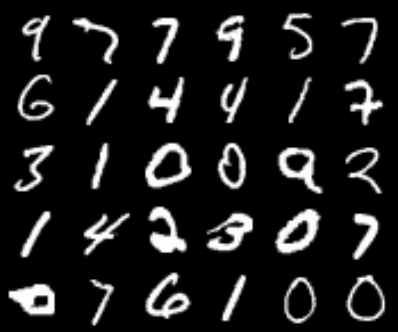 9 7 7 9 5 7
6 1 4 4 1 7
3 1 0 0 9 2
1 4 2 3 0 7
7 6 1 0 0